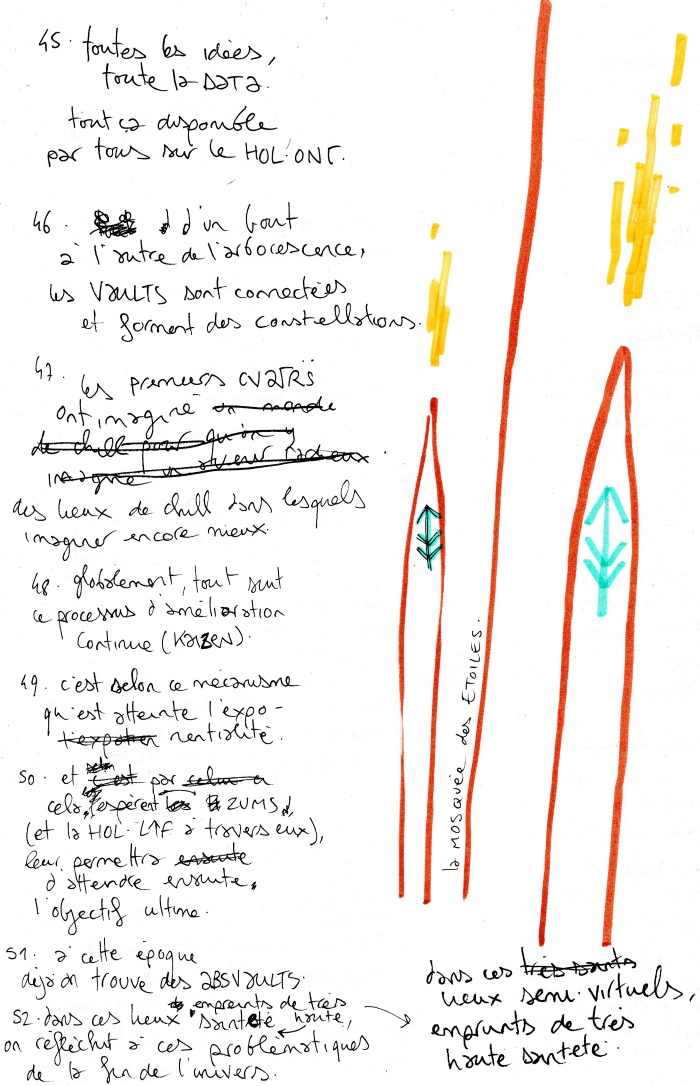 45. toutes les idées,
toute la DATA.
tout ça disponible
par tous sur le HOL·ONT.
46. d'un bout
à l'autre de l'arborescence,
les VAULTS sont connectées
et forment des constellations.
47. les premiers CVATRS
ont imaginé un monde
de chill pour qu'on y
imagine un avenir radieux.
des lieux de chill dans lesquels
imaginer encore mieux.
48. globalement, tout suit
ce processus d'amélioration
continue (KAIZEN).
49. c'est selon ce mécanisme
qu'est atteinte l'expo-
nentialité.
50. et par
cela, espèrent les ZUMS,
(et la HOL·LIF à travers eux),
leur permettra ensuite
d'atteindre ensuite,
l'objectif ultime.
51. à cette époque
déjà on trouve des ABSVAULTS.
52. dans ces lieux emprunts de très
sainteté haute,
on réfléchit à ces problématiques
de la fin de l'univers.
la MOSQUÉE des ETOILES.
dans ces très saints
lieux semi-virtuels,
emprunts de très
haute santeté.